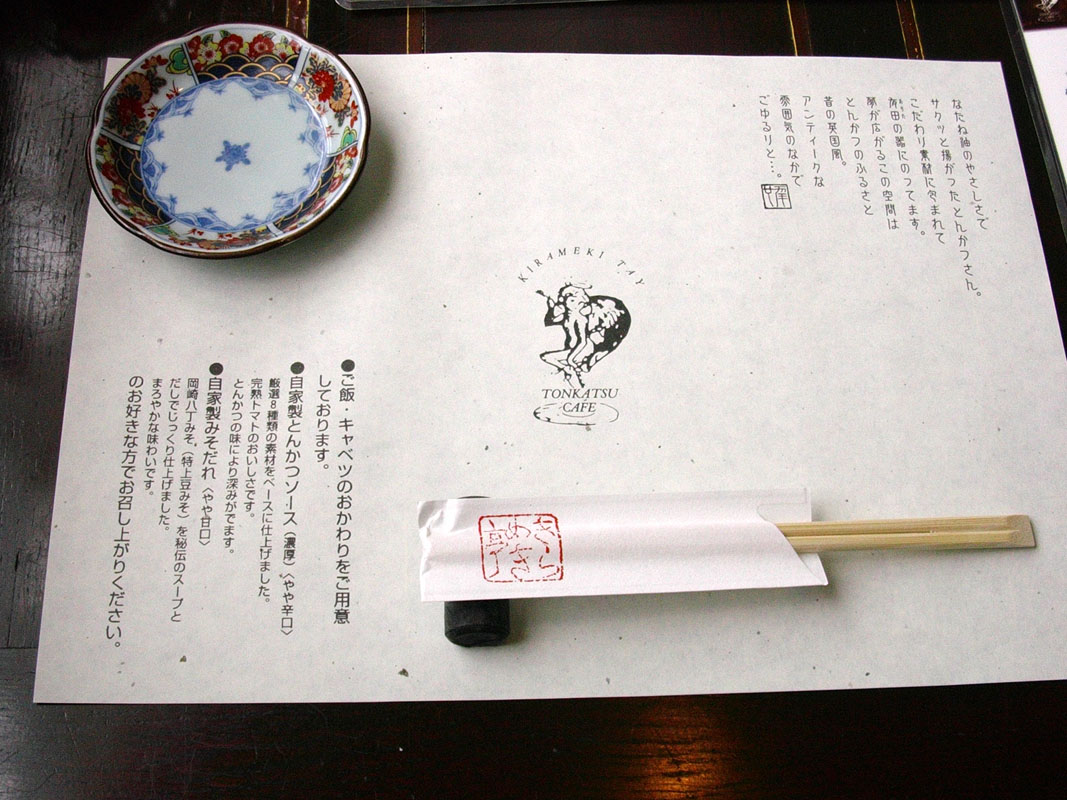 なたね油のやさしさで
サクッと揚がったとんかつさん。
こだわり素材に包まれて
有田の器にのってます。
夢が広がるこの空間は
とんかつのふるさと
昔の英国風。
アンティークな
雰囲気のなかで
ごゆるりと…。
KIRAMEKI TAY
TONKATSU
CAFE
●ご飯・キャベツのおかわりをご用意
しております。
●自家製とんかつソース（濃厚）〈やや辛口〉
厳選8種類の素材をベースに仕上げました。
完熟トマトのおいしさです。
とんかつの味により深みがでます。
●自家製みそだれ〈やや甘口〉
岡崎八丁みそ（特上豆みそ）を秘伝のスープと
だしでじっくり仕上げました。
まろやかな味わいです。
のお好きな方でお召し上がりください。
きら
めき
亭